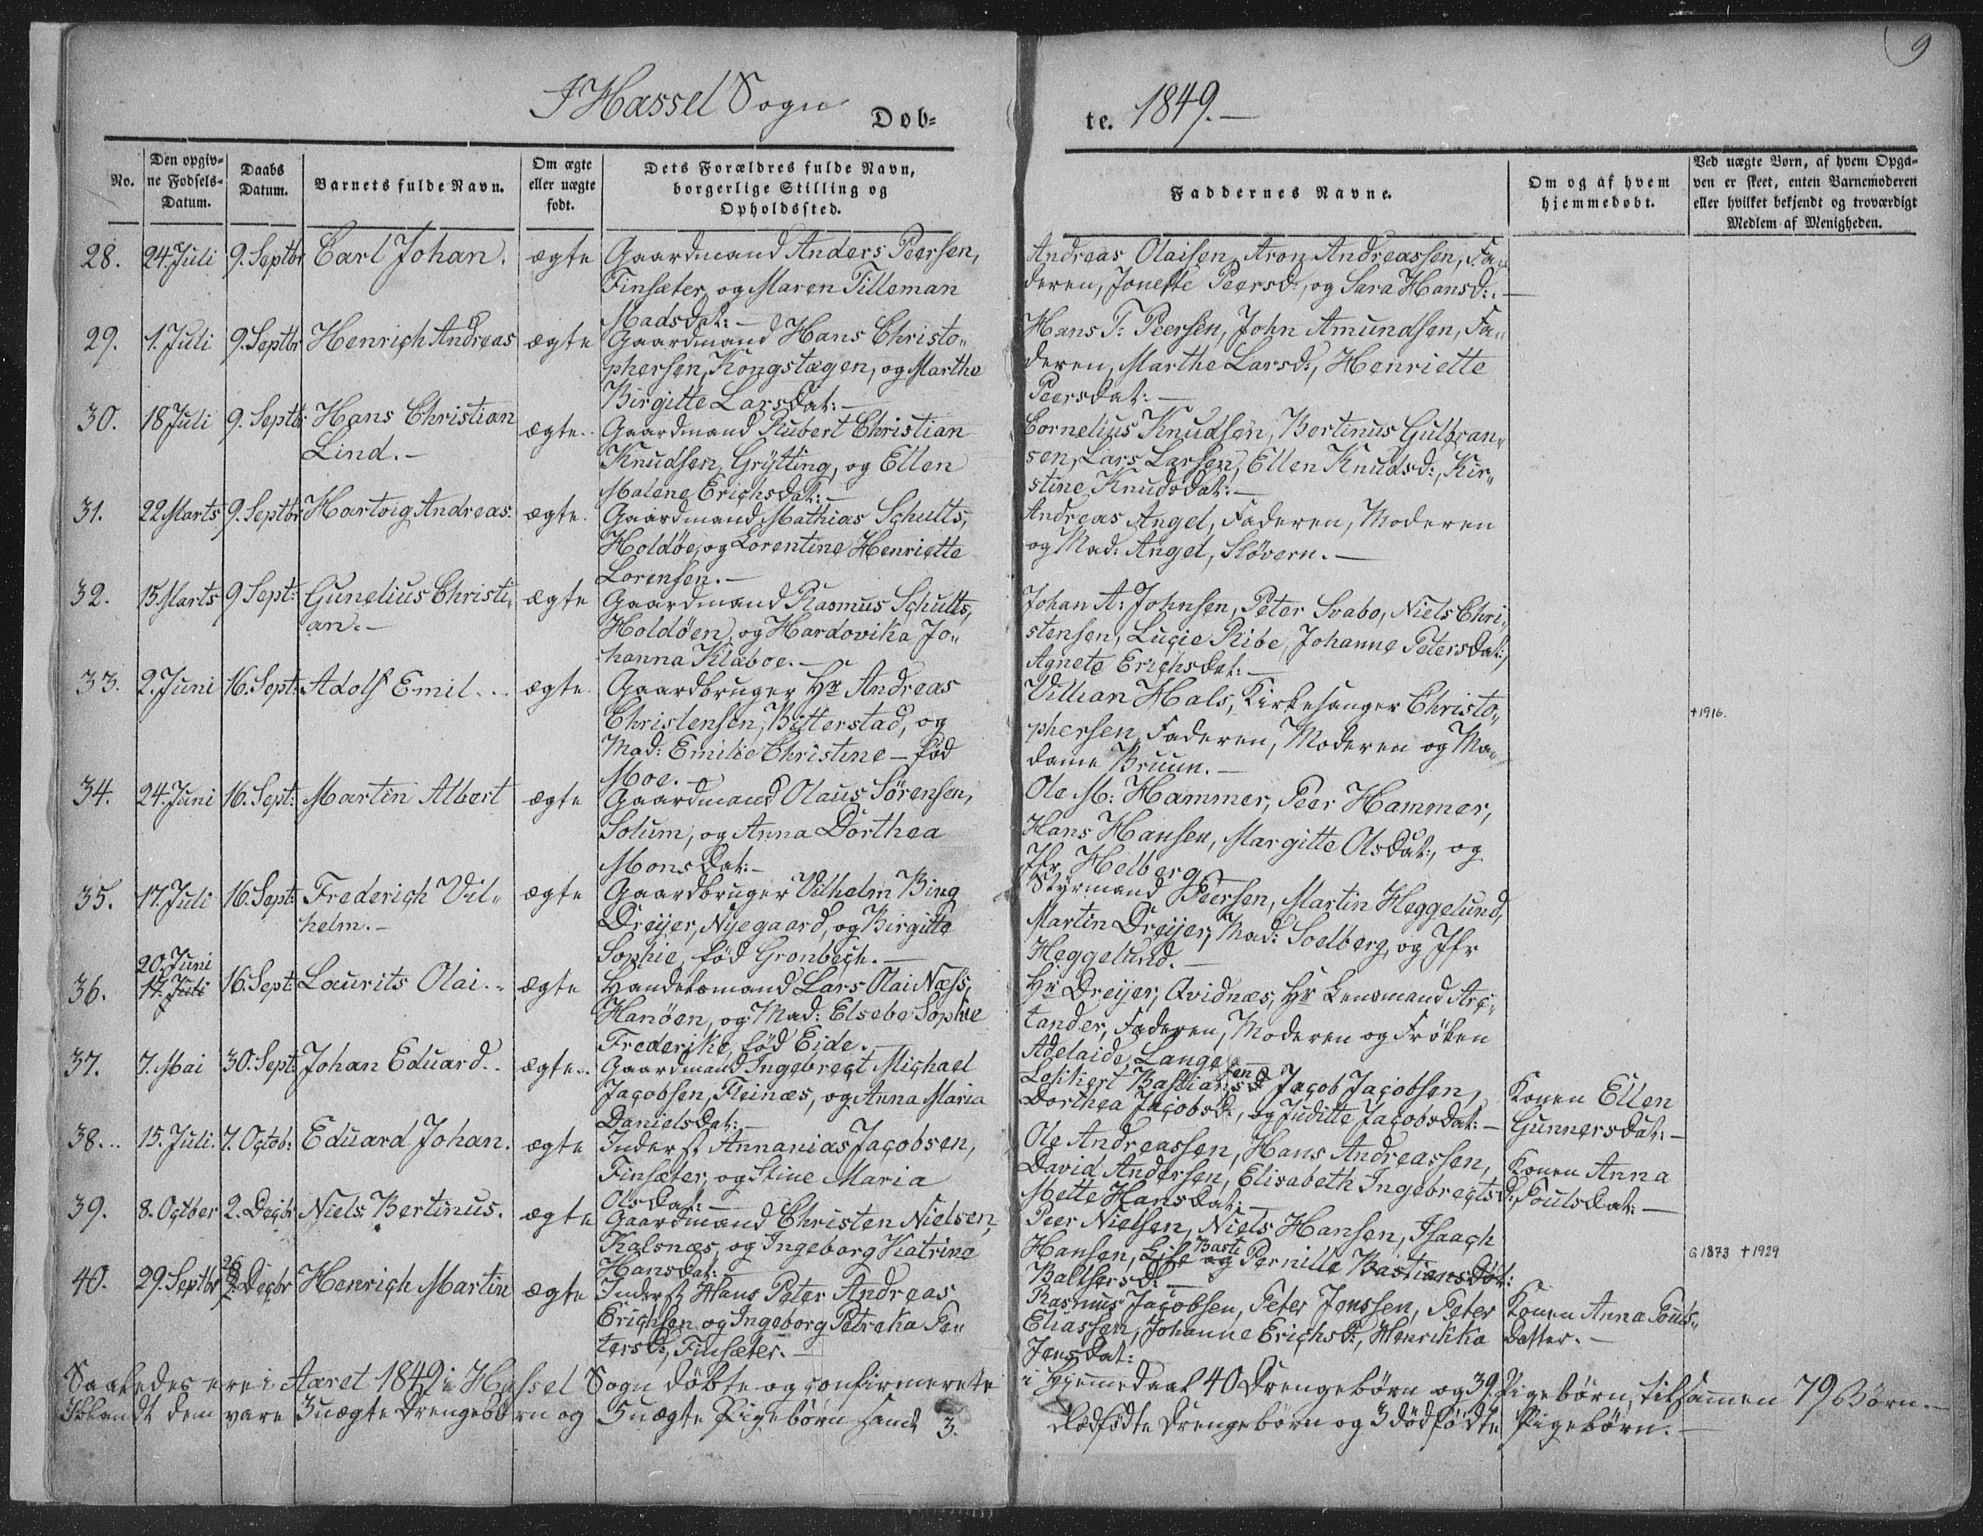 9
I Hassel Sogn Døb=
te. 1849.—
No.
Den opgiv-
ne Fødsels-
Datum.
Daabs
Datum.
Barnets fulde Navn.
Om ægte
eller uægte
født.
Dets Forældres fulde Navn,
borgerlige Stilling og
Opholdssted.
Faddernes Navne.
Om og af hvem
hjemmedøbt.
Ved uægte Børn, af hvem Opga-
ven er skeet, enten Barnemoderen
eller hvilket bekjendt og troværdigt
Medlem af Menigheden.
28. 24. Juli 9. Septbr Carl Johan. ægte Gaardmand Anders Peersen,
Finsæter, og Maren Tilleman
Madsdat:—
Andreas Olaisen, Aron Andreassen, Fa-
deren, Jonette Peersd:, og Sara Hansd:.—
29. 1. Juli 9. Septbr Henrich Andreas ægte Gaardmand Hans Christo-
phersen, Kongstægen, og Marthe
Birgitte Larsdat:—
Hans T: Peersen, John Amundsen, Fa-
deren, Marthe Larsd:, Henriette
Peersdat:—
30. 18 Juli 9. Septbr Hans Christian
Lind.— ægte.. Gaardmand Rubert Christian
Knudsen, Grytting, og Ellen
Malene Erichsdat:—
Cornelius Knudsen, Bertinus Gulbran-
sen, Lars Larsen, Ellen Knudsd:, Kir-
stine Knudsdat:—
31. 22 Marts 9. Septbr Hartvig Andreas. ægte. Gaardmand Mathias Schults,
Holdøe, og Lorentine Henriette
Lorensen.—
Andreas Angel, Faderen, Moderen
og Mad: Angel, Sløvern.—
32. 15 Marts 9 Sept: Gunelius Christi-
an.— ægte Gaardmand Rasmus Schults,
Holdøen, og Hardovika Jo-
hanna Klæboe.—
Johan A: Johnsen, Peter Svabo, Niels Chri-
stensen, Lucie Ribe, Johanne Petersdat:,
Agnete Erichsdat:—
33. 2. Juni 16. Sept: Adolf Emil... ægte. Gaardbruger Hr Andreas
Christensen, Bitterstad, og
Mad: Emilie Christine — fød
Moe.—
Villian Hals, Kirkesanger Christo-
phersen, Faderen, Moderen og Ma-
dame Bruun.—
†1916.
34. 24. Juni 16. Sept: Martin Albert ægte Gaardmand Olaus Sörensen,
Solum, og Anna Dorthea
Monsdat:—
Ole M: Hammer, Peer Hammer,
Hans Hansen, Margitte Olsdat:, og
Jfr Helberg.
35. 17. Juli 16. Sept: Frederich Vil-
helm.— ægte Gaardbruger Vilhelm Bing
Dreijer, Nyegaard, og Birgitte
Sophie, fød Gronbech.—
Styrmand Peersen, Martin Heggelund,
Martin Dreijer, Mad: Soelberg, og Jfr
Heggelund.—
36. 20. Juni
17. Juli 16. Sept: Laurits Olai.. ægte Handelsmand Lars Olai Næss,
Hanøen, og Mad: Elsebe Sophie
Frederike, fød Eide.—
Hr Dreijer, Qvidnæs, Hr Lensmand Arc-
tander, Faderen, Moderen og Frøken
Adelaide Lange.—
37. 7. Mai 30. Sept: Johan Eduard.. ægte.. Gaardmand Ingebregt Michael
Jacobsen, Fleinæs, og Anna Maria
Danielsdat:—
Lossiert Bastiansen Jacob Jacobsen,
Dorthea Jacobsd:, og Juditte Jacobsdat:—
Konen Ellen
Gunnersdat:—
38... 15. Juli. 7. Octob: Eduard Johan. ægte Inderst Annanias Jacobsen,
Finsæter, og Stine Maria
Olsdat:—
Ole Andreassen, Hans Andreassen,
David Andersen, Elisabeth Ingebregtsd:
Mette Hansdat:—
Konen Anna
Poulsdat:—
39. 8. Octber 2. Decbr Niels Bertinus. ægte Gaardmand Christen Nielsen,
Kalsnæs, og Ingeborg Katrine
Hansdat:—
Peer Nielsen, Niels Hansen, Isaach
Hansen, Lise Baste og Pernille Bastiansdat:
Baltsersd:—
G 1873 †1929
40. 29. Septbr 26
2. Decbr Henrich Martin ægte Inderst Hans Peter Andreas
Erichsen og Ingeborg Petreka Pe-
tersd:, Finsæter.—
Rasmus Jacobsen, Peter Jenssen, Peter
Eliassen, Johanne Erichsd:, Henrikka
Jensdat:
Konen Anna Pouls-
datter.—
Saaledes ere i Aaret 1849 i Hassel Sogn döbte og confirmerete i Hjemmedaab 40 Drengebørn og 39 Pigebørn, tilsamen 79 Børn.—
Iblandt dem vare 3 uægte Drengebørn og 5 uægte Pigebørn samt 3. dødfødte Drengebørn og 3 dødfødte Pigebørn.—